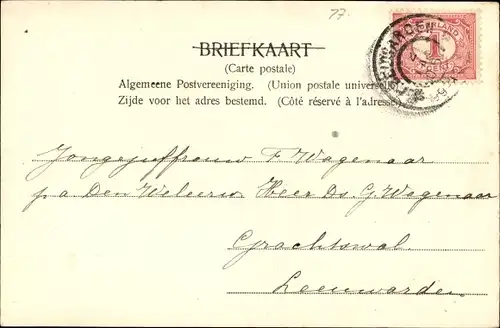 77.
BRIEFKAART
(Carte postale)
Algemeene Postvereeniging. (Union postale universelle)
Zijde voor het adres bestemd. (Côté réservé à l'adresse)
LEEUWARDEN
NEDERLAND
1
CENT
Jongejuffrouw F Wagenaar
p a Den Weleerw. Heer Ds G Wagenaar
Grachtswal.
Leeuwarden